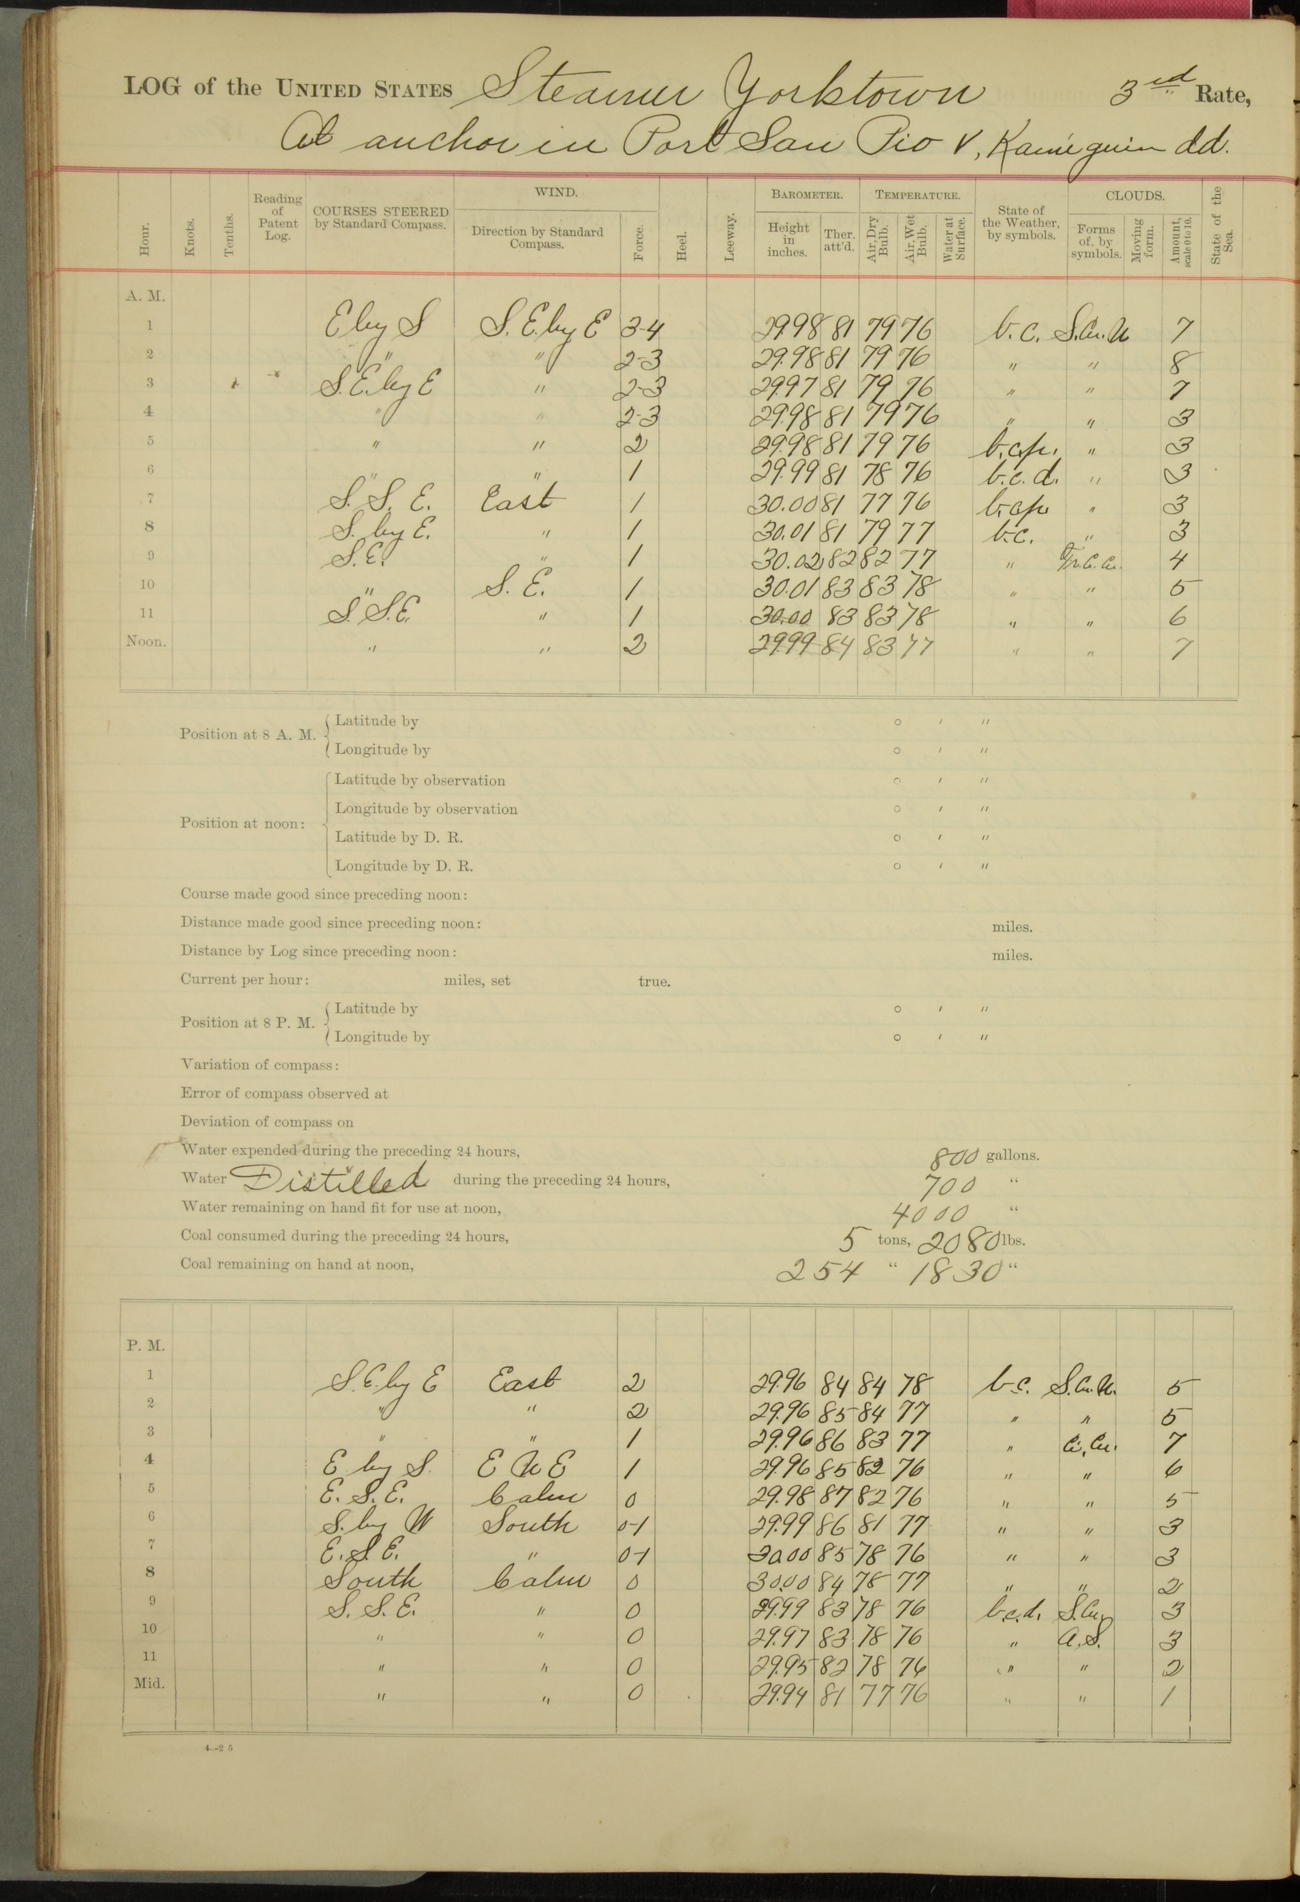 LOG of the UNITED STATES Steamer Yorktown 3rd Rate,
At anchor in Port San Pio V, Kamiguin Id.
Hour. Knots. Tenths. Reading of Patent Log. COURSES STEERED by Standard Compass. WIND. Direction by Standard Compass. Force. Heel. Leeway. BAROMETER. Height in inches. Ther. att'd. TEMPERATURE. Air, Dry Bulb. Air, Wet Bulb. Water at Surface. State of the Weather, by symbols. CLOUDS. Forms of, by symbols. Moving form. Amount, scale 0 to 10. State of the Sea.
A. M.
1 E by S S. E. by E 3-4 29.98 81 79 76 b. c. S. Cu. N 7
2 " " 2-3 29.98 81 79 76 " " 8
3 S. E. by E " 2-3 29.97 81 79 76 " " 7
4 " " 2-3 29.98 81 79 76 " " 3
5 " " 2 29.98 81 79 76 b. c. p. " 3
6 " " 1 29.99 81 78 76 b. c. d. " 3
7 S. S. E. East 1 30.00 81 77 76 b. c. p. " 3
8 S. by E. " 1 30.01 81 79 77 b. c. " 3
9 S. E. " 1 30.02 82 82 77 " 4
10 " S. E. 1 30.01 83 83 78 " " 5
11 S. S. E. " 1 30.00 83 83 78 " " 6
Noon. " " 2 29.99 84 83 77 " " 7
Position at 8 A. M. Latitude by ° ′ ″
Longitude by ° ′ ″
Position at noon: Latitude by observation ° ′ ″
Longitude by observation ° ′ ″
Latitude by D. R. ° ′ ″
Longitude by D. R. ° ′ ″
Course made good since preceding noon:
Distance made good since preceding noon: miles.
Distance by Log since preceding noon: miles.
Current per hour: miles, set true.
Position at 8 P. M. Latitude by ° ′ ″
Longitude by ° ′ ″
Variation of compass:
Error of compass observed at
Deviation of compass on
Water expended during the preceding 24 hours, 800 gallons.
Water Distilled during the preceding 24 hours, 700 "
Water remaining on hand fit for use at noon, 4000 "
Coal consumed during the preceding 24 hours, 5 tons, 2080 lbs.
Coal remaining on hand at noon, 254 " 1830 "
P. M.
1 S. E. by E East 2 29.96 84 84 78 b. c. S. Cu. N. 5
2 " " 2 29.96 85 84 77 " " 5
3 " " 1 29.96 86 83 77 " Ci. Cu. 7
4 E by S. E N E 1 29.96 85 82 76 " " 6
5 E. S. E. Calm 0 29.98 87 82 76 " " 5
6 S. by W South 0-1 29.99 86 81 77 " " 3
7 E. S. E. " 0-1 30.00 85 78 76 " " 3
8 South Calm 0 30.00 84 78 77 " " 2
9 S. S. E. " 0 29.99 83 78 76 b. c. d. S. Cu. 3
10 " " 0 29.97 83 78 76 " A. S. 3
11 " " 0 29.95 82 78 76 " " 2
Mid. " " 0 29.94 81 77 76 " " 1
4—25